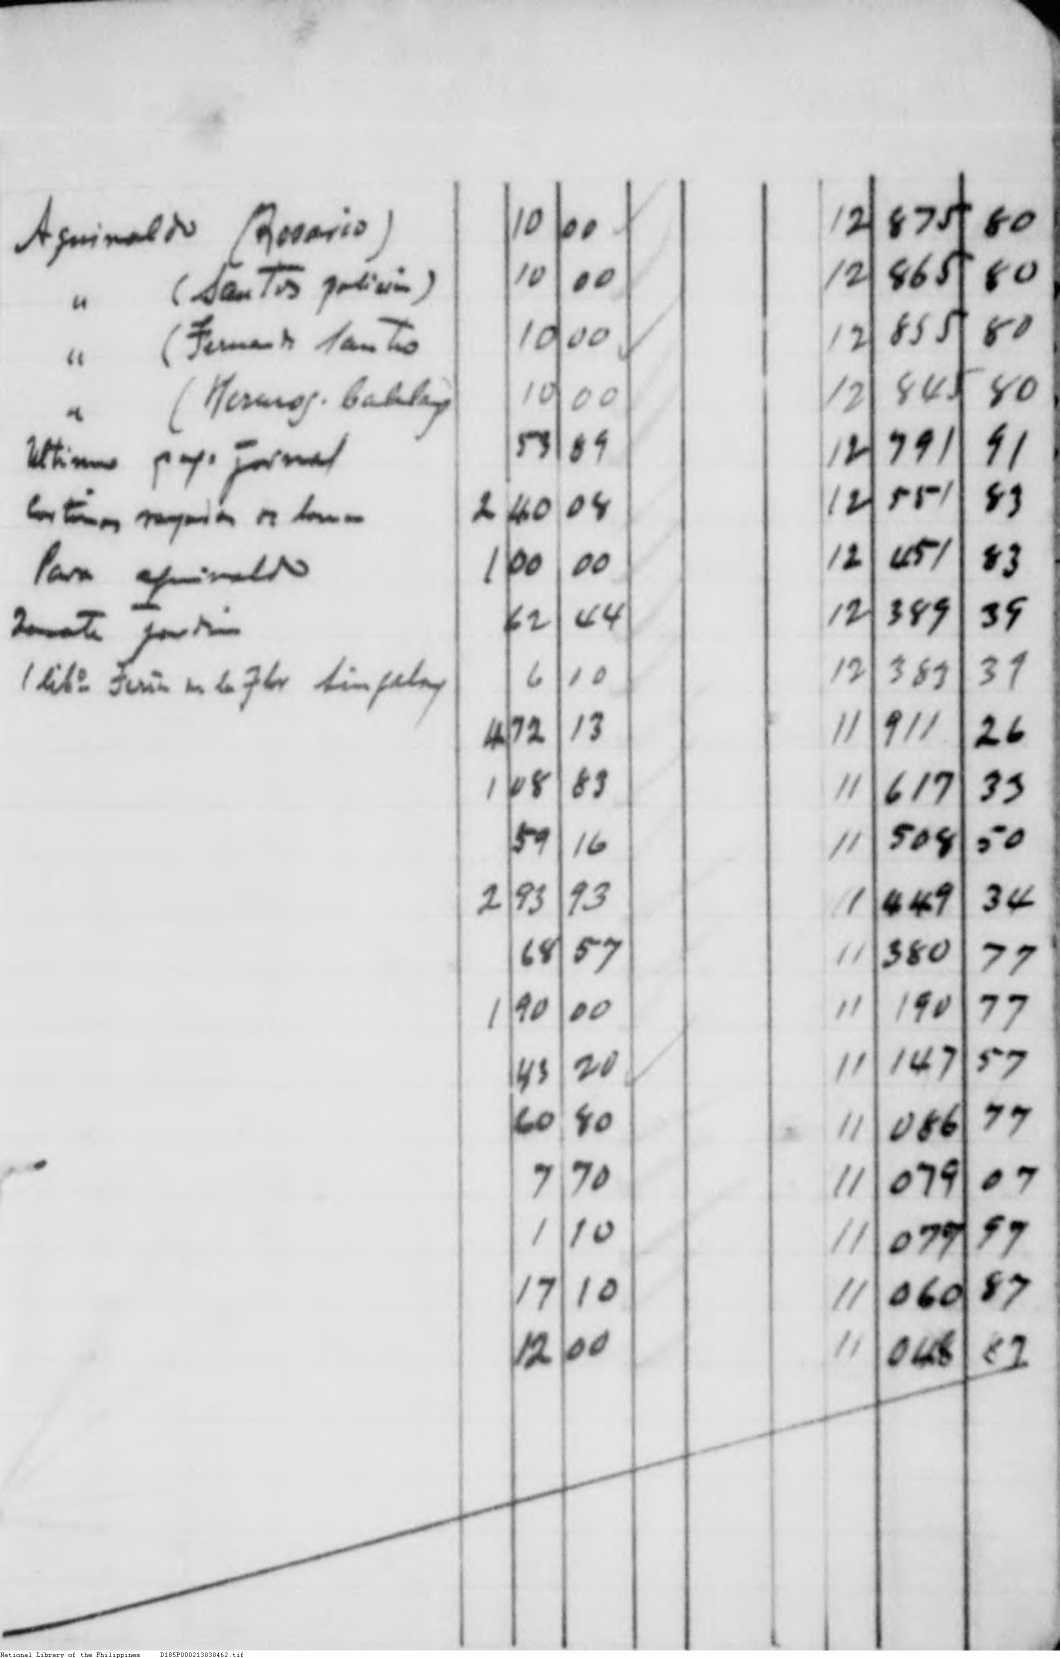 Aguinaldo (Rosario) 10 00 12 875 80
" (Santos policia) 10 00 12 865 80
" (Fernando Santos 10 00 12 855 80
" ( 10 00 12 845 80
Ultimo pago Jornal 53 89 12 791 91
2 40 08 12 551 83
Para aguinaldo 1 00 00 12 451 83
62 44 12 389 39
1 en la Flor Singalong 6 10 12 383 39
4 72 13 11 911 26
1 08 83 11 617 33
59 16 11 508 50
2 93 93 11 449 34
68 57 11 380 77
1 90 00 11 190 77
43 20 11 147 57
60 80 11 086 77
7 70 11 079 07
1 10 11 077 97
17 10 11 060 87
12 00 11 048 87
National Library of the Philippines D185P000213838462.tif